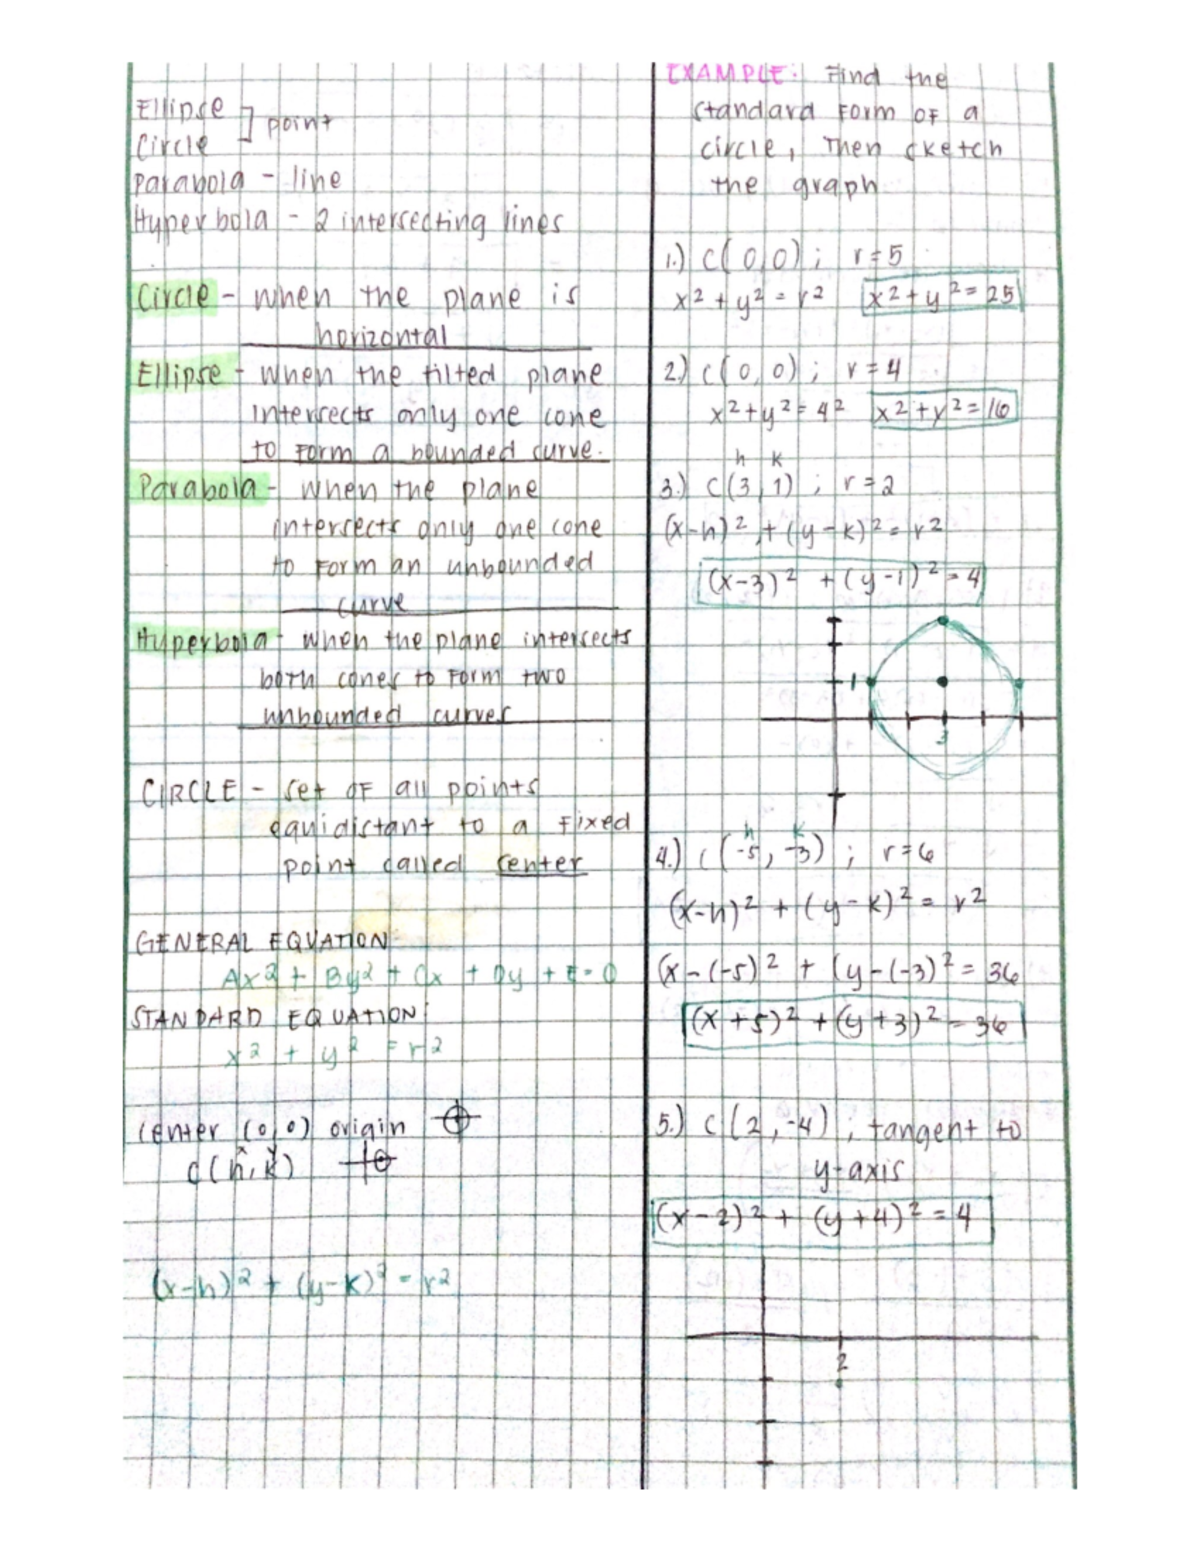 Ellipse ] point
Circle
Parabola - line
Hyperbola - 2 intersecting lines
Circle - when the plane is
horizontal
Ellipse - when the tilted plane
intersects only one cone
to form a bounded curve.
Parabola - when the plane
intersects only one cone
to form an unbounded
curve
Hyperbola - when the plane intersects
both cones to form two
unbounded curves
CIRCLE - set of all points
equidistant to a fixed
point called center
GENERAL EQUATION
Ax² + By² + Cx + Dy + E = 0
STANDARD EQUATION
x² + y² = r²
center (0,0) origin
C(h,k)
(x-h)² + (y-k)² = r²
EXAMPLE: Find the
standard form of a
circle, then sketch
the graph
1.) C(0,0); r=5
x² + y² = r² x² + y² = 25
2.) C(0,0); r=4
x² + y² = 4² x² + y² = 16
h k
3.) C(3,1); r=2
(x-h)² + (y-k)² = r²
(x-3)² + (y-1)² = 4
1
3
h k
4.) C(-5,-3); r=6
(x-h)² + (y-k)² = r²
(x-(-5)² + (y-(-3)² = 36
(x+5)² + (y+3)² = 36
5.) C(2,-4); tangent to
y-axis
(x-2)² + (y+4)² = 4
2